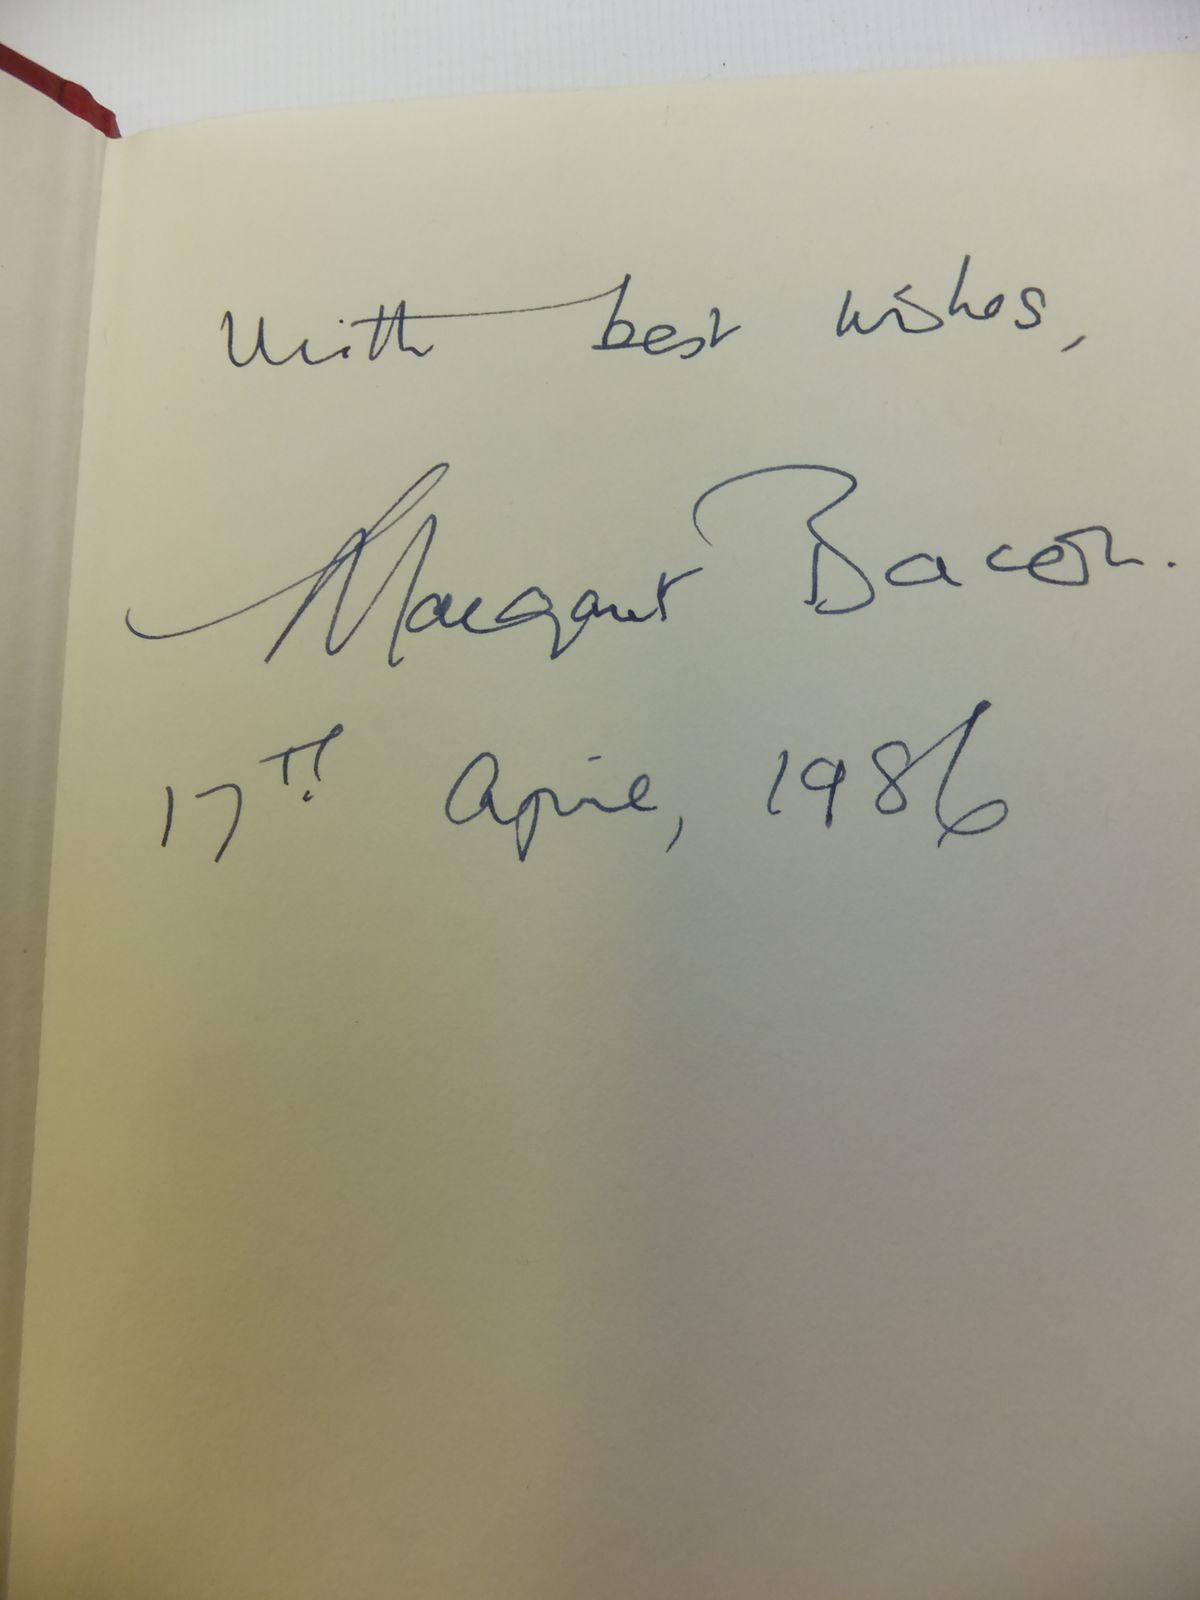 With best wishes,
Margaret Bacon.
17TH April, 1986